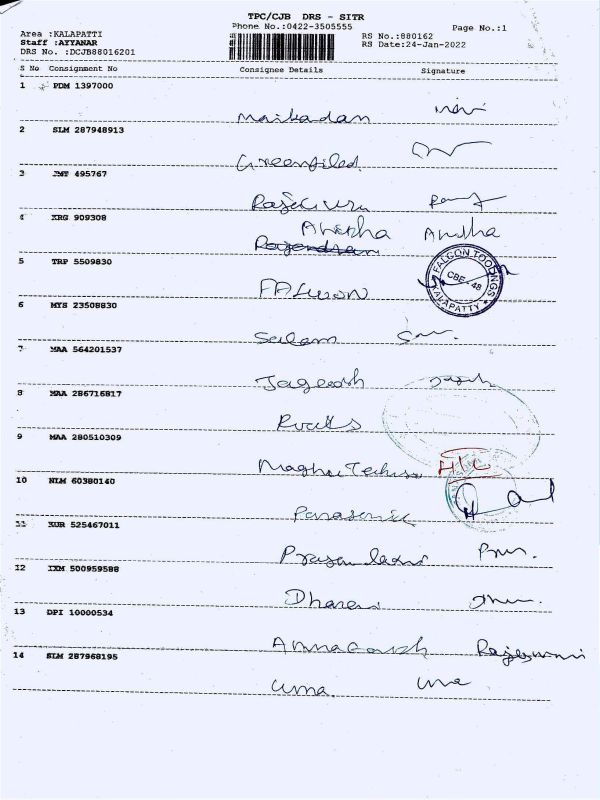 TPC/CJB DRS - SITR
Phone No.:0422-3505555
Page No.:1
Area :KALAPATTI
Staff :AYYANAR
DRS No. :DCJB88016201
RS No.:880162
RS Date:24-Jan-2022
S No Consignment No Consignee Details Signature
1 PDM 1397000
Manikadan
2 SLM 287948913
Greenfiled
3 JMT 495767
4 KRG 909308
Anitha Anitha
Rajendran
5 TRP 5509830
FALCON TOOLINGS
CBE - 48
KALAPATTY
Falcon
6 MYS 23508830
Salam
7 MAA 564201537
Jageesh
8 MAA 286716817
9 MAA 280510309
10 NLM 60380140
Panasonic
11 KUR 525467011
12 IXM 500959588
13 DPI 10000534
Rajeswari
14 SLM 287968195
Uma Uma